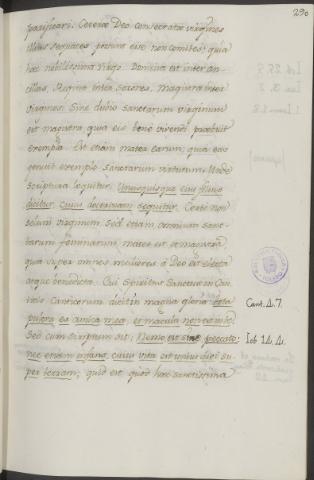 290
pacificari. Ceterae Deo consecratae virgines
illius sequaces possunt esse non comites; quia
haec nobilissima Virgo. Domina est inter an-
cillas, Regina inter sorores, magistra inter
virgines. Sine dubio sanctarum virginum
est magistra quia eis bene vivendi praebuit
exempla. Et etiam mater earum; quia eas
genuit exemplo sanctarum virtutum. Unde
scriptura loquitur. Unusquisque eius filius
dicitur, cuius doctrinam sequitur. Certe non
solum virginum, sed etiam omnium sanc-
tarum feminarum mater est et magistra,
quia super omnes mulieres a Deo est electa
atque benedicta. Cui Spiritus Sanctus in Can-
ticis Canticorum dicit in magna gloria tota
pulcra es amica mea, et macula non est in te.
Cant. 4. 7.
Sed cum scriptum sit: Nemo est sine peccato:
Iob 14. 4.
nec etiam infans, cuius vita est unius diei su-
per terram; quid est quod haec sanctissima